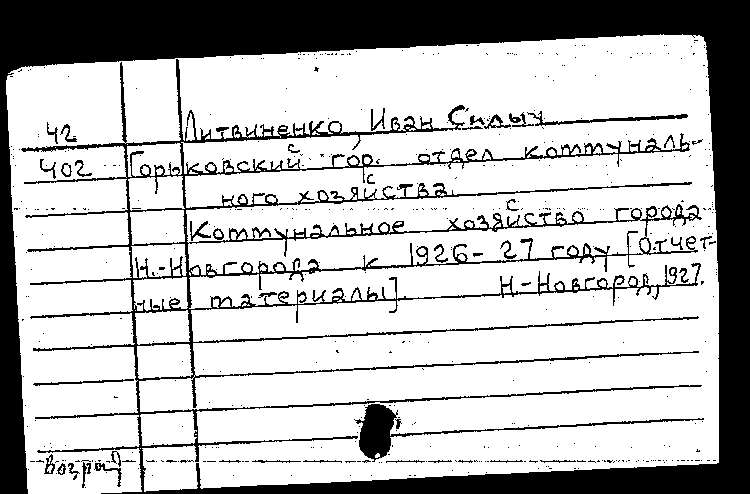 42 Литвиненко, Иван Силыч
402 Горьковский гор. отдел коммуналь-
ного хозяйства.
Коммунальное хозяйство города
Н.-Новгорода к 1926-27 году [Отчет-
ные материалы]. Н.-Новгород, 1927.